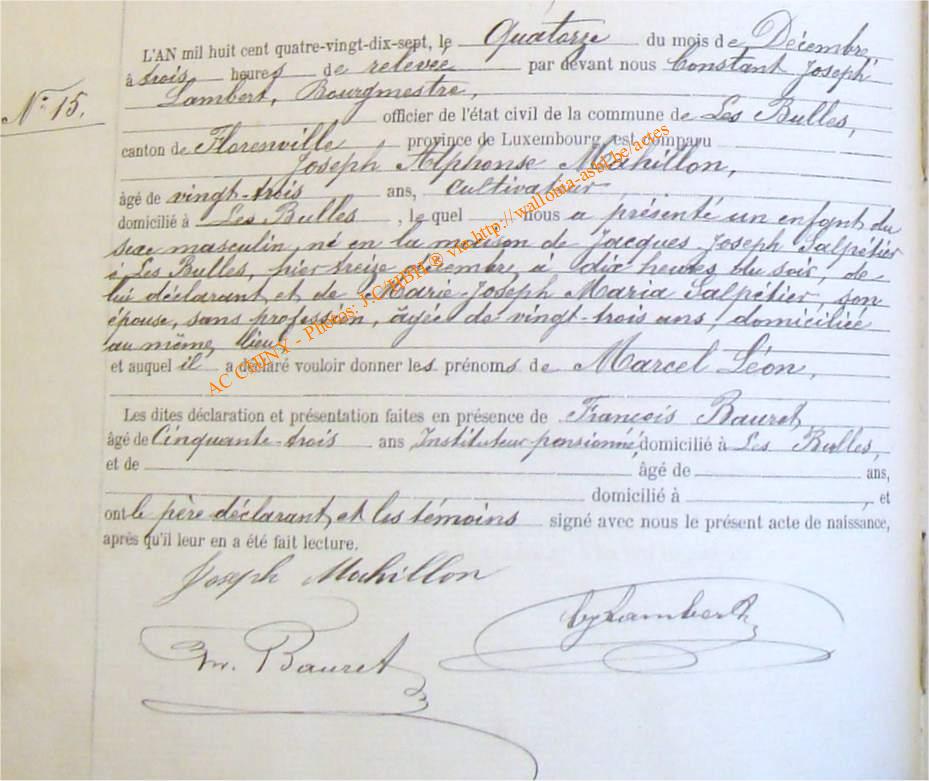 L'AN mil huit cent quatre-vingt-dix-sept, le Quatorze du mois de Décembre
à trois heures de relevée par devant nous Constant Joseph
Lambert, Bourgmestre,
N° 15.
officier de l'état civil de la commune de Les Bulles,
canton de Florenville province de Luxembourg, est comparu
Joseph Alphonse Mahillon,
âgé de vingt-trois ans, Cultivateur,
domicilié à Les Bulles, le quel nous a présenté un enfant du
sexe masculin, né en la maison de Jacques Joseph Salpétier
à Les Bulles, hier treize décembre, à dix heures du soir, de
lui déclarant et de Marie-Joseph Maria Salpétier, son
épouse, sans profession, âgée de vingt-trois ans, domiciliée
au même lieu,
et auquel il a déclaré vouloir donner les prénoms de Marcel Léon,
Les dites déclaration et présentation faites en présence de François Bauret,
âgé de Cinquante-trois ans Instituteur pensionné, domicilié à Les Bulles,
et de âgé de ans,
domicilié à , et
ont le père déclarant et les témoins signé avec nous le présent acte de naissance,
après qu'il leur en a été fait lecture.
Joseph Mahillon
CjLambert
Bauret
AC CHINY - Photos: J.C. HBH ® via http://walloma-asbl.be/actes